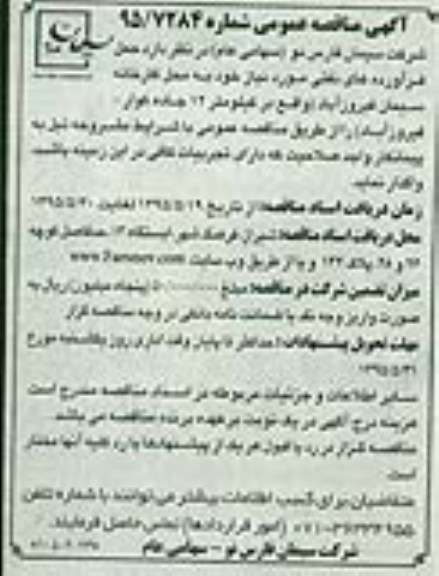 آگهی مناقصه عمومی شماره ۹۵/۷۲۸۴
شرکت سیمان فارس نو (سهامی عام) در نظر دارد حمل
فرآورده های نفتی مورد نیاز خود به محل کارخانه
سیمان فیروزآباد (واقع در کیلومتر ۱۲ جاده
فیروزآباد) را از طریق مناقصه عمومی با شرایط مشروحه ذیل به
پیمانکار واجد صلاحیت که دارای تجربیات کافی در این زمینه باشد،
واگذار نماید.
زمان دریافت اسناد مناقصه: از تاریخ ۱۳۹۵/۵/۱۹ لغایت ۱۳۹۵/۵/۳۰
محل دریافت اسناد مناقصه: شیراز فرهنگ شهر، ایستگاه ۱۳ حدفاصل کوچه
و ۲۸ پلاک و یا از طریق وب سایت
میزان تضمین شرکت در مناقصه: مبلغ (پنجاه میلیون) ریال به
صورت واریز وجه نقد یا ضمانت نامه بانکی در وجه مناقصه گزار
مهلت تحویل پیشنهادات: حداکثر تا پایان وقت اداری روز یکشنبه مورخ
۱۳۹۵/۵/۳۱
سایر اطلاعات و جزئیات مربوطه در اسناد مناقصه مندرج است
هزینه درج آگهی در یک نوبت بر عهده برنده مناقصه می باشد
مناقصه گزار در رد یا قبول هر یک از پیشنهادها یا رد کلیه آنها مختار
است.
متقاضیان برای کسب اطلاعات بیشتر می توانند با شماره تلفن
(امور قراردادها) تماس حاصل فرمایند.
شرکت سیمان فارس نو - سهامی عام